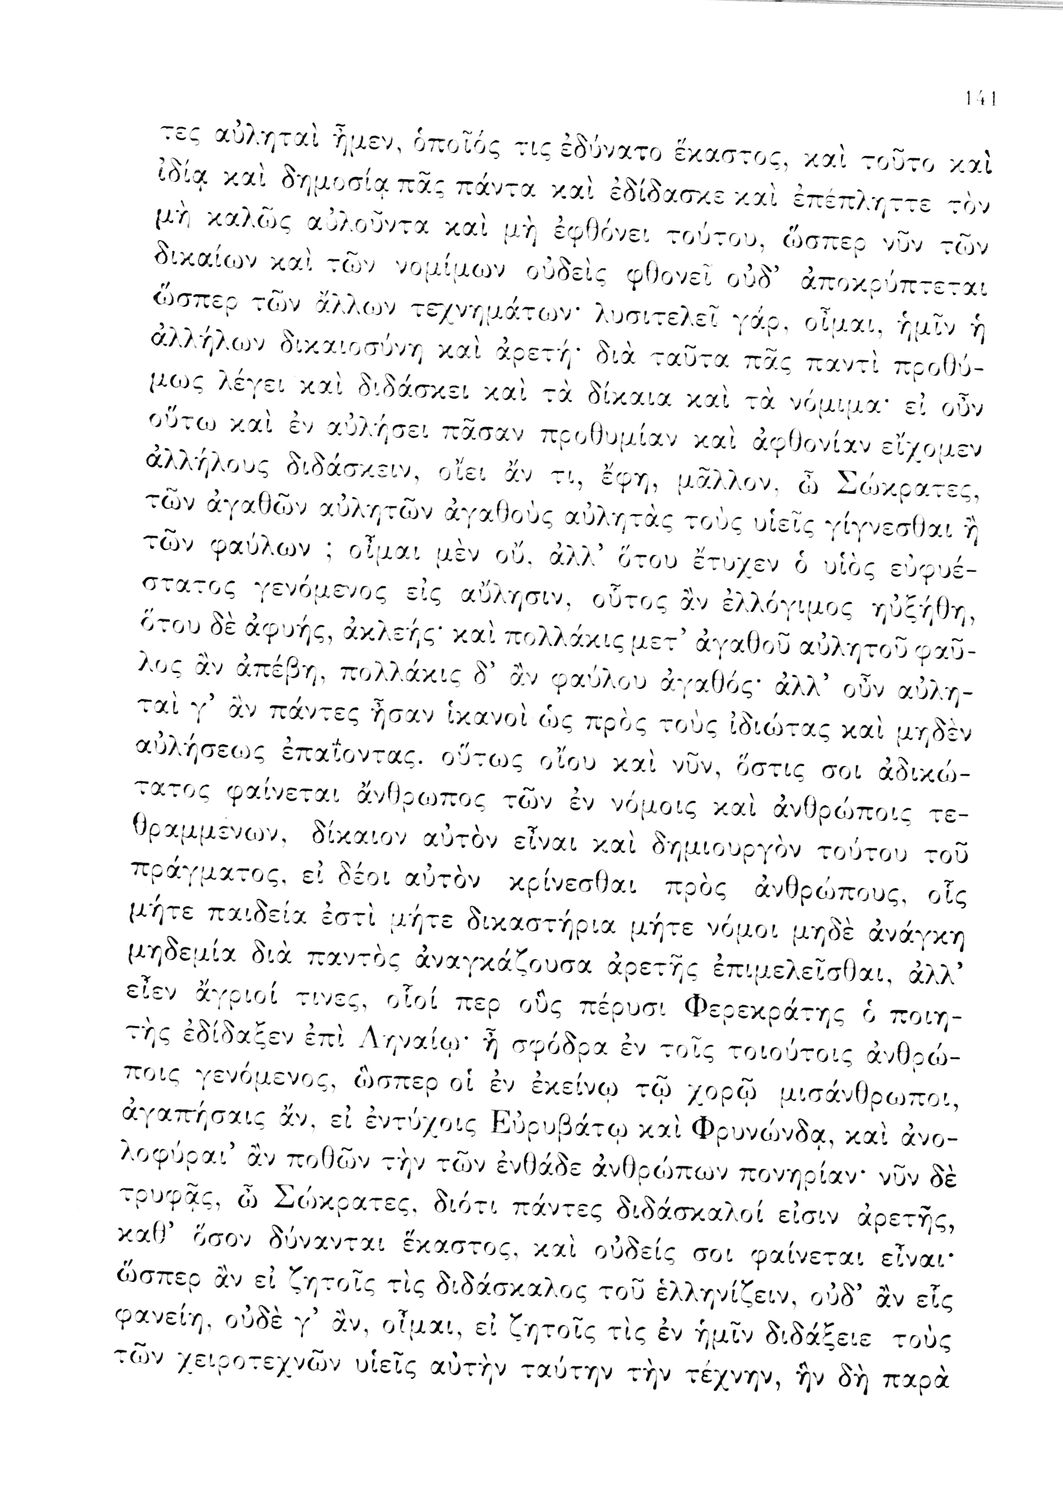 141
τες αὐληταὶ ἦμεν, ὁποῖός τις ἐδύνατο ἕκαστος, καὶ τοῦτο καὶ
ἰδίᾳ καὶ δημοσίᾳ πᾶς πάντα καὶ ἐδίδασκε καὶ ἐπέπληττε τὸν
μὴ καλῶς αὐλοῦντα καὶ μὴ ἐφθόνει τούτου, ὥσπερ νῦν τῶν
δικαίων καὶ τῶν νομίμων οὐδεὶς φθονεῖ οὐδ’ ἀποκρύπτεται
ὥσπερ τῶν ἄλλων τεχνημάτων· λυσιτελεῖ γάρ, οἶμαι, ἡμῖν ἡ
ἀλλήλων δικαιοσύνη καὶ ἀρετή· διὰ ταῦτα πᾶς παντὶ προθύ-
μως λέγει καὶ διδάσκει καὶ τὰ δίκαια καὶ τὰ νόμιμα· εἰ οὖν
οὕτω καὶ ἐν αὐλήσει πᾶσαν προθυμίαν καὶ ἀφθονίαν εἴχομεν
ἀλλήλους διδάσκειν, οἴει ἄν τι, ἔφη, μᾶλλον, ὦ Σώκρατες,
τῶν ἀγαθῶν αὐλητῶν ἀγαθοὺς αὐλητὰς τοὺς υἱεῖς γίγνεσθαι ἢ
τῶν φαύλων ; οἶμαι μὲν οὔ, ἀλλ’ ὅτου ἔτυχεν ὁ υἱὸς εὐφυέ-
στατος γενόμενος εἰς αὔλησιν, οὗτος ἂν ἐλλόγιμος ηὐξήθη,
ὅτου δὲ ἀφυής, ἀκλεής· καὶ πολλάκις μετ’ ἀγαθοῦ αὐλητοῦ φαῦ-
λος ἂν ἀπέβη, πολλάκις δ’ ἂν φαύλου ἀγαθός· ἀλλ’ οὖν αὐλη-
ταὶ γ’ ἂν πάντες ἦσαν ἱκανοὶ ὡς πρὸς τοὺς ἰδιώτας καὶ μηδὲν
αὐλήσεως ἐπαΐοντας. οὕτως οἴου καὶ νῦν, ὅστις σοι ἀδικώ-
τατος φαίνεται ἄνθρωπος τῶν ἐν νόμοις καὶ ἀνθρώποις τε-
θραμμένων, δίκαιον αὐτὸν εἶναι καὶ δημιουργὸν τούτου τοῦ
πράγματος, εἰ δέοι αὐτὸν κρίνεσθαι πρὸς ἀνθρώπους, οἷς
μήτε παιδεία ἐστὶ μήτε δικαστήρια μήτε νόμοι μηδὲ ἀνάγκη
μηδεμία διὰ παντὸς ἀναγκάζουσα ἀρετῆς ἐπιμελεῖσθαι, ἀλλ’
εἶεν ἄγριοί τινες, οἷοί περ οὓς πέρυσι Φερεκράτης ὁ ποιη-
τὴς ἐδίδαξεν ἐπὶ Ληναίῳ· ἦ σφόδρα ἐν τοῖς τοιούτοις ἀνθρώ-
ποις γενόμενος, ὥσπερ οἱ ἐν ἐκείνῳ τῷ χορῷ μισάνθρωποι,
ἀγαπήσαις ἄν, εἰ ἐντύχοις Εὐρυβάτῳ καὶ Φρυνώνδᾳ, καὶ ἀνο-
λοφύραι’ ἂν ποθῶν τὴν τῶν ἐνθάδε ἀνθρώπων πονηρίαν· νῦν δὲ
τρυφᾷς, ὦ Σώκρατες, διότι πάντες διδάσκαλοί εἰσιν ἀρετῆς,
καθ’ ὅσον δύνανται ἕκαστος, καὶ οὐδείς σοι φαίνεται εἶναι·
ὥσπερ ἂν εἰ ζητοῖς τὶς διδάσκαλος τοῦ ἑλληνίζειν, οὐδ’ ἂν εἷς
φανείη, οὐδὲ γ’ ἂν, οἶμαι, εἰ ζητοῖς τὶς ἐν ἡμῖν διδάξειε τοὺς
τῶν χειροτεχνῶν υἱεῖς αὐτὴν ταύτην τὴν τέχνην, ἣν δὴ παρὰ